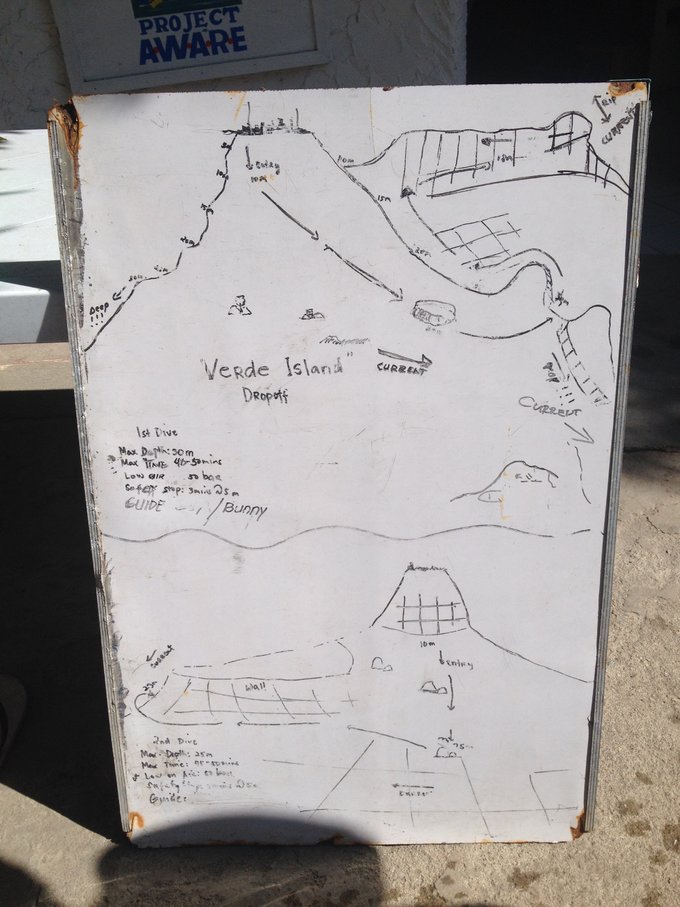 PROJECT
AWARE
Rip
CURRENT
Entry
10m
10m
18m
15m
Deep
!!!
"Verde Island"
Dropoff
CURRENT
CURRENT
1st Dive
Max Depth: 30m
Max TIME 45-50mins
LOW AIR 50 bar
Safety stop: 3mins @5m
GUIDE / BUNNY
10m
Entry
CURRENT
25m
Wall
2nd Dive
Max Depth: 25m
Max Time: 45-50mins
Low on Air: 50 bar
Safety Stop 3mins @5m
Guide: